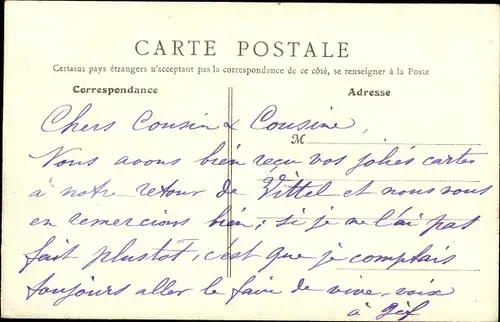 CARTE POSTALE
Certains pays étrangers n'acceptant pas la correspondance de ce côté, se renseigner à la Poste
Correspondance
Adresse
M
Chers Cousin & Cousine,
Nous avons bien reçu vos jolies cartes
à notre retour de Vittel et nous vous
en remercions bien; si je ne l'ai pas
fait plustot, c'est que je comptais
toujours aller le faire de vive-voix
à